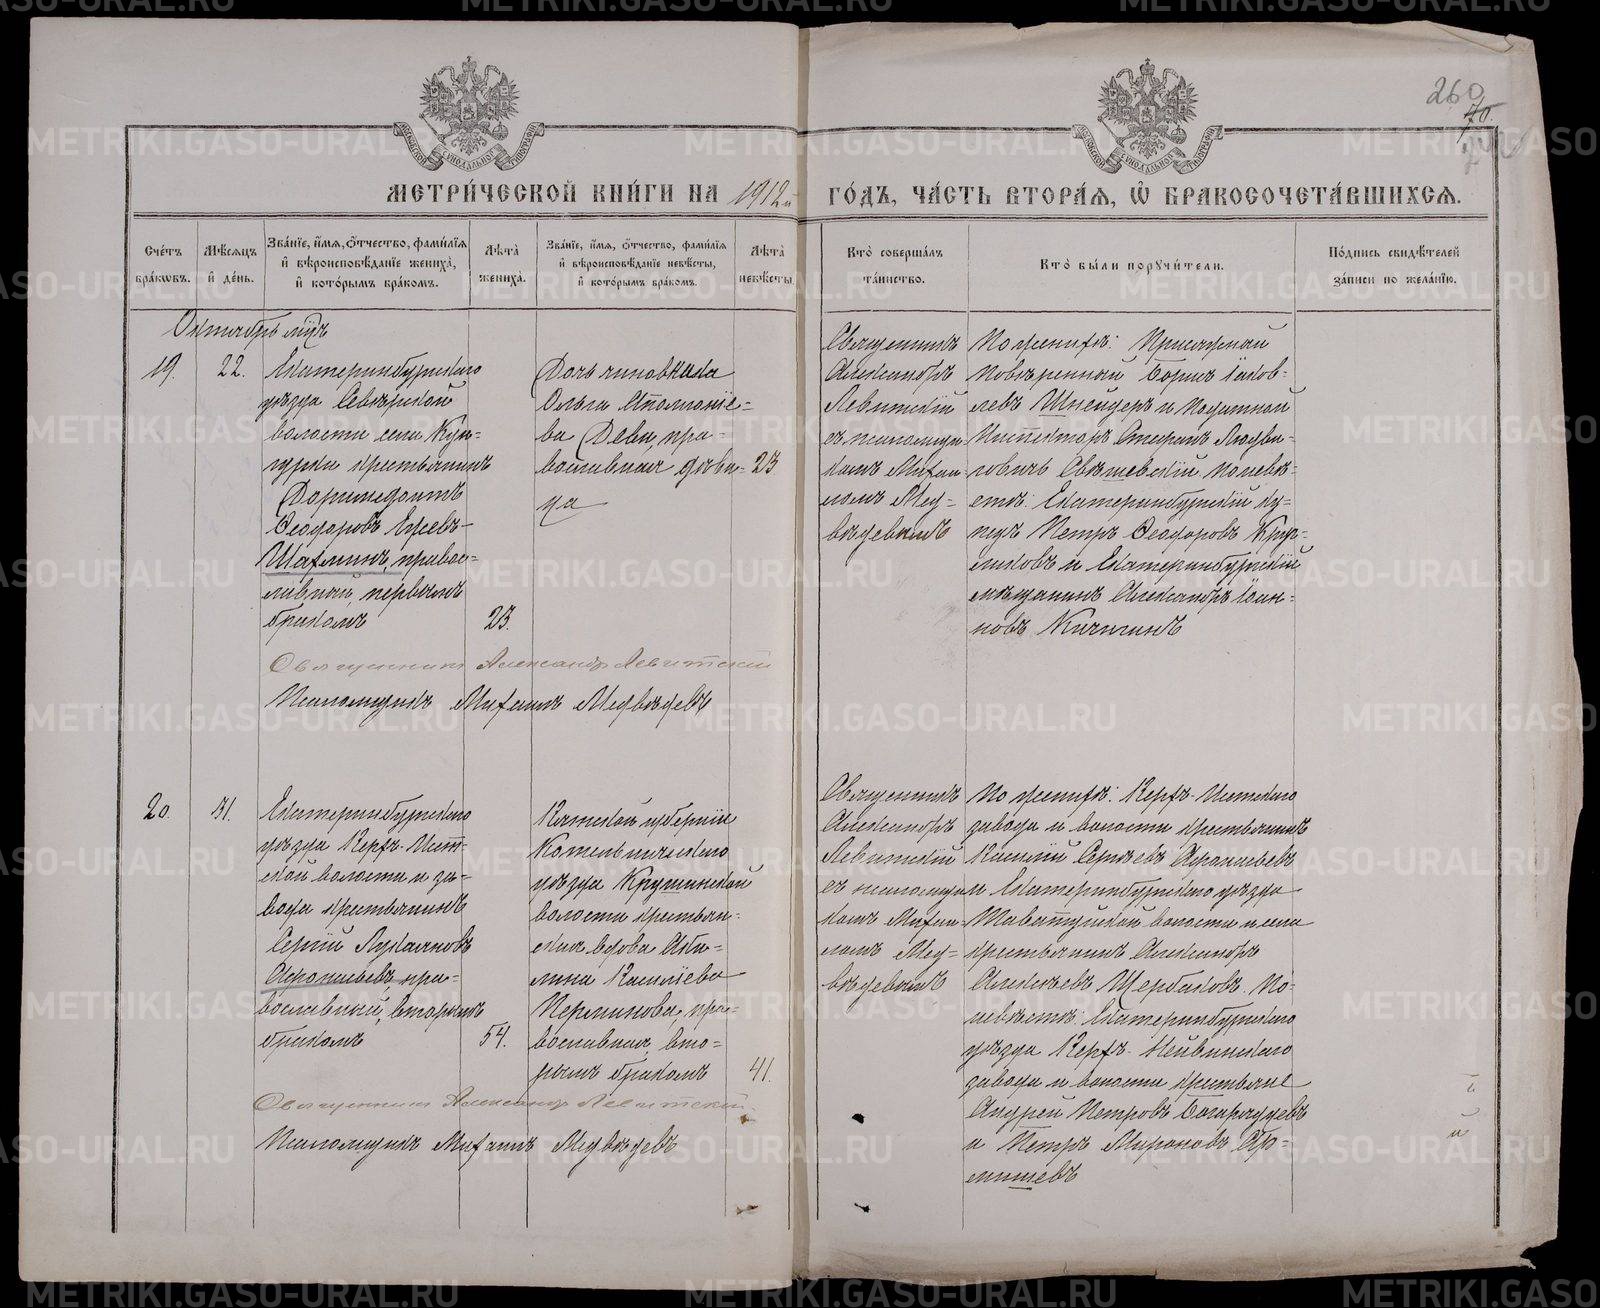 260
70.
МЕТРИ́ЧЕСКОЙ КНИ́ГИ НА 1912й ГО́ДЪ, ЧА́СТЬ ВТОРА́Я, Ѡ БРАКОСОЧЕТА́ВШИХСЯ.
Сче́тъ бра́кѡвъ.
Мѣ́сяцъ й де́нь.
Зва́нїе, и҆́мя, ѻ҆́тчество, фами́лїя й вѣроисповѣ́данїе жениха̀, й кото́рымъ бра́комъ.
Лѣ́та жениха̀.
Зва́нїе, и҆́мя, ѻ҆́тчество, фами́лїя й вѣроисповѣ́данїе невѣ́сты, й кото́рымъ бра́комъ.
Лѣ́та невѣ́сты.
Кто̀ соверша́лъ та́инство.
Кто̀ бы́ли порꙋчи́тели.
По́дпись свидѣ́телей за́писи по жела́нїю.
Октябрь мцъ
19.
22.
Екатеринбургскаго
уѣзда Сѣверской
волости села Кун-
гурки крестьянинъ
Доримедонтъ
Ѳеодоровъ Ершевъ-
Шахминъ, правос-
лавный, первымъ
бракомъ
23.
Дочь чиновника
Ольга Аполлоніе-
ва Деви, пра-
вославная дѣви-
ца
23
Священникъ
Александръ
Левитскій
съ псаломщи-
комъ Михаи-
ломъ Мед-
вѣдевымъ
По женихѣ: Присяжный
повѣренный Борисъ Іаков-
левъ Шнейдеръ и Податной
Инспекторъ Стефанъ Людви-
говичъ Свѣшевскій. По невѣ-
стѣ: Екатеринбургскій ку-
пецъ Петръ Ѳеодоровъ Круг-
ликовъ и Екатеринбургскій
мѣщанинъ Александръ Іоан-
новъ Кичигинъ
Священникъ Александр Левитский
Псаломщикъ Михаилъ Медвѣдевъ
20.
31.
Екатеринбургскаго
уѣзда Верхъ-Исет-
ской волости и за-
вода крестьянинъ
Сергій Лукіановъ
Афонасьевъ, пра-
вославный, вторымъ
бракомъ
54.
Вятской губерніи
Котельническаго
уѣзда Крушинской
волости крестьян-
ская вдова Аки-
лина Василіева
Перминова, пра-
вославная, вто-
рымъ бракомъ
41.
Священникъ
Александръ
Левитскій
съ псаломщи-
комъ Михаи-
ломъ Мед-
вѣдевымъ
По женихѣ: Верхъ-Исетскаго
завода и волости крестьянинъ
Василій Сергѣевъ Афонасьевъ
и Екатеринбургскаго уѣзда
Таватуйской волости и села
крестьянинъ Александръ
Алексѣевъ Щербаковъ. По
невѣстѣ: Екатеринбургскаго
уѣзда Верхъ-Нейвинскаго
завода и волости крестьяне
Андрей Петровъ Богатыревъ
и Петръ Мироновъ
Священникъ Александръ Левитский
Псаломщикъ Михаилъ Медвѣдевъ
METRIKI.GASO-URAL.RU